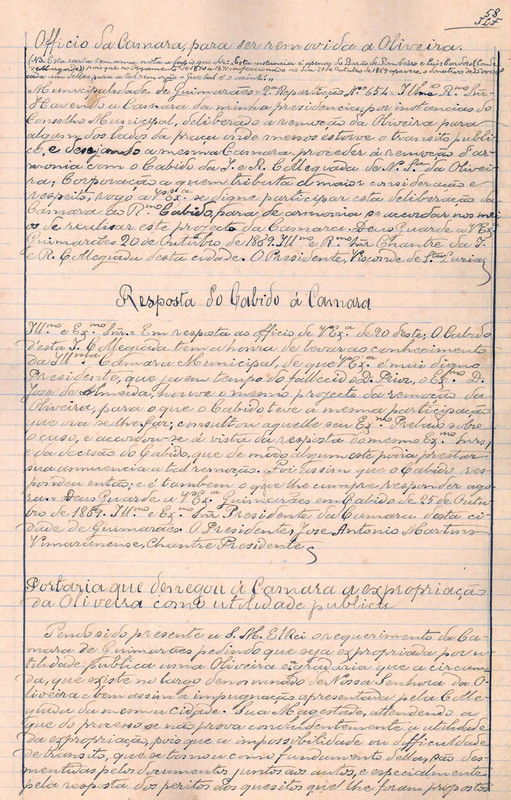 58
Officio da Camara, para ser removida a Oliveira.
Municipalidade de Guimarães 2ª Repartição Nº 654. Illmo Rmo Snr
Havendo a Camara da minha presidencia, por instancias do
Conselho Municipal, deliberado a remoção da Oliveira para
algum dos lados da praça, onde menos estorve o transito publi-
co, e desejando a mesma Camara proceder á remoção d'ar-
monia com o Cabido da I. e R. Collegiada de N. Snra da Olivei-
ra, Corporação a quem tributa a maior consideração e
respeito, rogo a V. Exª se digne participar esta deliberação da
Camara ao Rmo Cabido, para de armonia se accordar nos mei-
os de realisar este projecto da Camara. Deus Guarde a V. Exª
Guimarães 20 de Outubro de 1869. Illmo e Rmo Snr Chantre da I.
e R. Collegiada desta cidade. O Presidente, Visconde de Sta Luzia
Resposta do Cabido á Camara
Illmo e Exmo Snr. Em resposta ao officio de V. Exª de 20 deste, O Cabido
desta I. Collegiada tem a honra de levar ao conhecimento
da Illma Camara Municipal, de que V. Exª é mui digno
Presidente, que já em tempo do fallecido D. Prior, o Exmo D.
José de Almeida, houve o mesmo projecto da remoção da
Oliveira, para o que o Cabido teve a mesma participação
que ora se lhe faz; consultou aquelle seu Exmo Prelado sobre
o caso, e accordou-se á vista da resposta do mesmo Exmo Snr,
e da decisão do Cabido, que de modo algum este podia prestar
sua annuencia a tal remoção. Foi assim que o Cabido res-
pondeu então; e é tambem o que lhe cumpre responder ago-
ra. Deus Guarde a V. Exª Guimarães em Cabido de 25 de Outu-
bro de 1869. Illmo e Exmo Snr. Presidente da Camara desta ci-
dade de Guimarães. O Presidente, José Antonio Martins
Vimaranense, Chantre Presidente
Portaria que denegou á Camara a expropriação
da Oliveira como utilidade publica
Tendo sido presente a S. M. ElRei o requerimento da Ca-
mara de Guimarães pedindo que seja expropriada por u-
tilidade publica uma Oliveira e gradaria que a circum-
da, que existe no largo denominado de Nossa Senhora da O-
liveira e bem assim a impugnação apresentada pela Colle-
giada da mesma cidade: Sua Magestade, attendendo a
que do processo se não prova convenientemente a utilidade
da expropriação, pois que a impossibilidade ou difficuldade
de transito, que se tomou como fundamento della, são des-
mentidas pelos documentos juntos aos autos, e especialmente
pela resposta dos peritos aos quesitos que lhe foram propostos